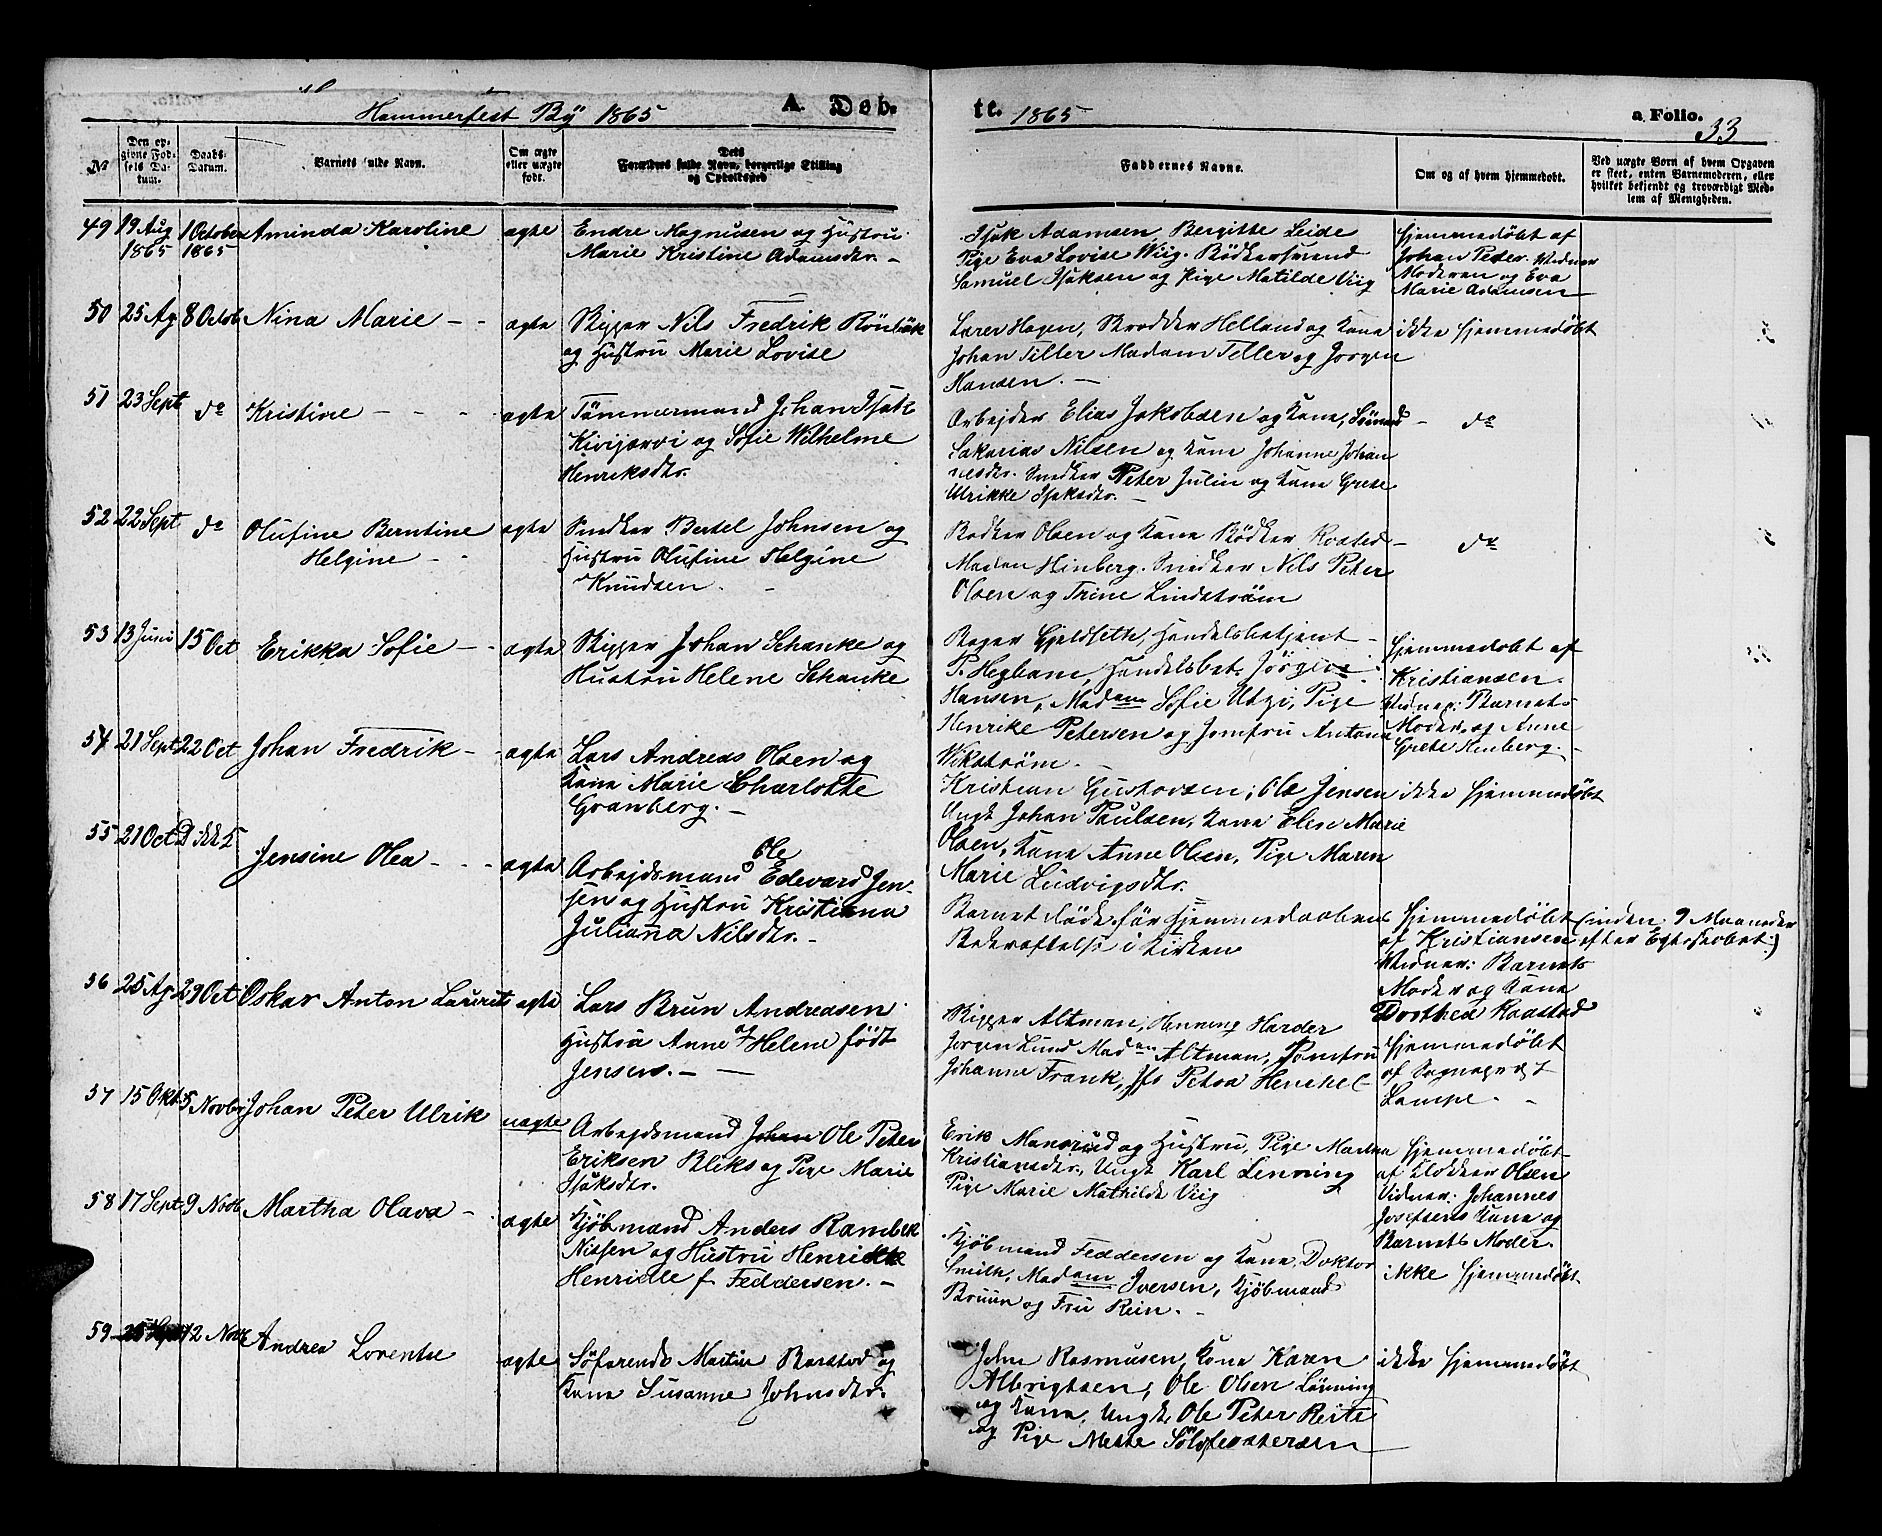 Hammerfest By 1865
A. Døb-
te. 1865
a Folio. 33
№
Den op-
givne Fød-
sels Da-
tum.
Daabs-
Datum.
Barnets fulde Navn.
Om ægte
eller uægte
født.
Dets
Forældres fulde Navn, borgerlige Stilling
og Opholdssted
Faddernes Navne.
Om og af hvem hjemmedøbt.
Ved uægte Børn af hvem Opgaven
er skeet, enten Barnemoderen, eller
hvilket bekjendt og troværdigt Med-
lem af Menigheden.
49 19 Aug 1 October Aminda Karoline ægte Endre Magnusen og Hustru
1865 1865 Marie Kristine Adamsdtr. –
Isak Adamsen Bergitte Leide
Pige Eva Lovise Wiig. Bødkersvend
Samuel Isaksen og Pige Matilde Viig
hjemmedøbt af
Johan Peder. Vidner
Moderen og Eva
Marie Adamsen
50 25 Ag 8 Octob Nina Marie – – ægte Skipper Nils Fredrik Rönbäk
og Hustru Marie Lovise
Lærer Hagen, Skrædder Helland og Kone
Johan Tiller Madam Teller og Jørgen
Hansen. –
ikke hjemmedøbt
51 23 Sept do Kristine – – – ægte Tømmermand Johan Isak
Kivijærvi og Sofie Wilhelme
Henriksdtr.
Arbejder Elias Jakobsen og Kone,
Sakarias Nilsen og Kone Johanne Johan
nesdtr. Snedker Peter Julin og Kone Grete
Ulrikke Isaksdtr. –
– do
52 22 Sept do Olufine Berntine ægte Snedker Bertel Johnsen og
Helgine – – Hustru Olufine Helgine
Knudsen. –
Bødker Olsen og Kone Bødker Rosted –
Madam Hinberg. Snedker Nils Peter
Olsen og Trine Lindstrøm
do
53 13 Juni 15 Oct Erikka Sofie – – ægte Skipper Johan Schanke og
Hustru Helene Schanke
Bager Gjeldseth, Handelsbetjent –
P. Hegbom, Handelsbet. Jörgen
Hansen, Madam Sofie Utzi, Pige
Henrike Petersen og Jomfru Antona
Wikstrøm. –
hjemmedøbt af
Kristiansen.
Vidner: Barnets
Moder og Anne
Grete Hinberg. –
54 21 Sept 22 Oct Johan Fredrik – – ægte Lars Andreas Olsen og
Kone Marie Charlotte
Granberg. –
Kristian Gustavsen, Ole Jensen
Ungk Johan Paulsen, Kone Elen Marie
Olsen, Kone Anne Olsen, Pige Maren
Marie Ludvigsdtr.
ikke hjemmedøbt
55 21 Oct Jensine Olea – – – ægte Arbejdsmand Ole Edevard Jen-
sen og Hustru Kristiana
Juliana Nilsdtr. –
Barnet døde før Hjemmedaabens
Bekræftelse i Kirken
hjemmedøbt
af Kristiansen
Vidner: Barnets
Moder og Kone
Dorthea Raastad
(inden 9 Maaneder
efter Egteskabet.)
56 25 Ag. 29 Oct Oskar Anton Laurits ægte Lars Brun Andreasen
Hustru Anne Helene født
Jensen. – –
Skipper Altman, Henning Harder
Jørgen Lund Madam Altman, Jomfru
Johanne Frank, Jfr Petra Henckel –
hjemmedøbt
af Sogneprest
Lampe. –
57 15 Okt. 5 Novbr Johan Peter Ulrik uægte Arbejdsmand Johan Ole Peter
Eriksen Bliks og Pige Marie
Isaksdtr.
Erik Mansrud og Hustru, Pige Martha
Kristiansdtr., Ungk Karl Lenning
Pige Marie Mathilde Viig
hjemmedøbt
af Klokker Olsen
Vidner: Johannes
Josefsens Kone og
Barnets Moder.
58 17 Sept 9 Novb Martha Olava – ægte Kjøbmand Anders Rambek
Nissen og Hustru Henrikke
Henrielle f. Feddersen. –
Kjøbmand Feddersen og Kone, Doktor
Smith, Madam Iversen, Kjøbmand
Bruun og Fru Rein. –
ikke hjemmedøbt
59 25 Sept 12 Novb Andrea Lorentse ægte Søfarende Martin Barstad og
Kone Susanne Johnsdtr.
John Rasmusen, Kone Karen
Albrigtsen, Ole Olsen Lönning
og Kone, Ungk. Ole Peter Reite
og Pige Mette
ikke hjemmedøbt